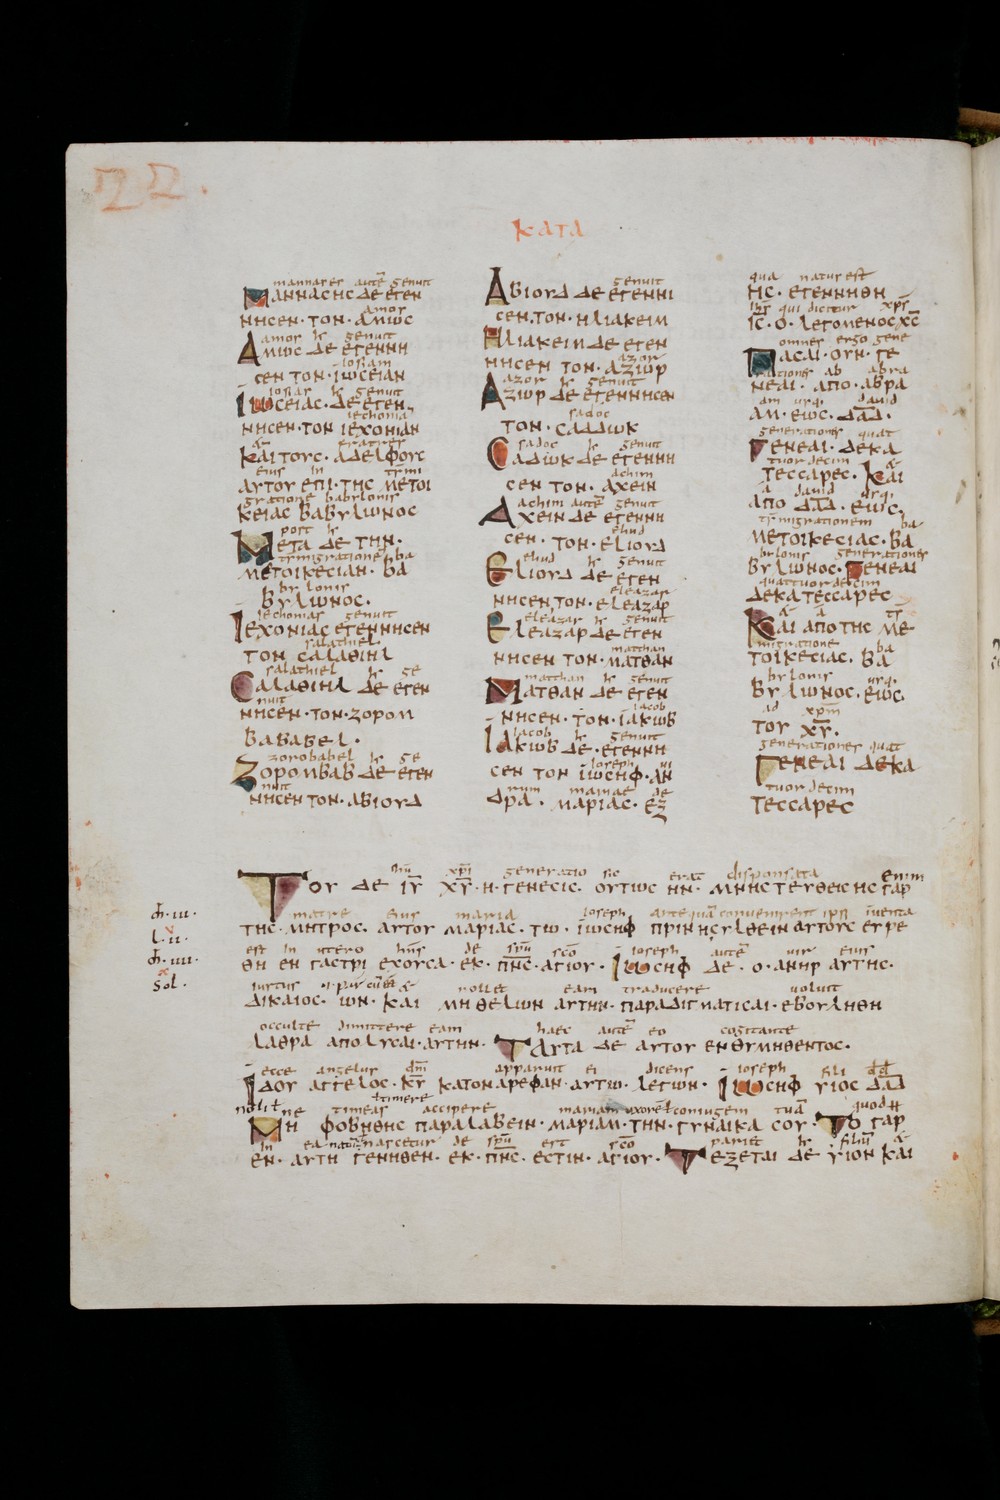 22.
ΚΑΤΑ
mannases aute genuit
ΜΑΝΝΑCΗC ΔΕ ΕΓΕΝ
amos
ΝΗCΕΝ · ΤΟΝ · ΑΜΩC
amos genuit
ΑΜΩC ΔΕ ΕΓΕΝΝΗ
iosiam
CΕΝ ΤΟΝ · ΙΩCΕΙΑΝ
iosias genuit
ΙΩCΕΙΑC · ΔΕ · ΕΓΕΝ
iechonia
ΝΗCΕΝ · ΤΟΝ ΙΕΧΟΝΙΑΝ
fratres
ΚΑΙ ΤΟΥC · ΑΔΕΛΦΟΥC
eius in trsmi
ΑΥΤΟΥ ΕΠΙ · ΤΗC ΜΕΤΟΙ
gratione babylonis
ΚΕΙΑC ΒΑΒΥΛΩΝΟC
post
ΜΕΤΑ ΔΕ ΤΗΝ ·
trsmigratione ba
ΜΕΤΟΙΚΕCΙΑΝ · ΒΑ
bylonis
ΒΥΛΩΝΟC ·
iechonias genuit
ΙΕΧΟΝΙΑC ΕΓΕΝΝΗCΕΝ
salathiel
ΤΟΝ CΑΛΑΘΙΗΛ
salathiel ge
CΑΛΑΘΙΗΛ ΔΕ ΕΓΕΝ
nuit
ΝΗCΕΝ · ΤΟΝ · ΖΟΡΟΜ
ΒΑΒΑΒΕΛ ·
zorobabel ge
ΖΟΡΟΜΒΑΒ ΔΕ ΕΓΕΝ
nuit
ΝΗCΕΝ ΤΟΝ · ΑΒΙΟΥΔ
genuit
ΑΒΙΟΥΔ ΔΕ ΕΓΕΝΝΙ
CΕΝ · ΤΟΝ · ΗΛΙΑΚΕΙΜ
ΗΛΙΑΚΕΙΜ ΔΕ ΕΓΕΝ
azor
ΝΗCΕΝ ΤΟΝ · ΑΖΙΩΡ
azor genuit
ΑΖΙΩΡ ΔΕ ΕΓΕΝΝΗCΕΝ
sadoc
ΤΟΝ · CΑΔΔΩΚ
sadoc genuit
CΑΔΩΚ ΔΕ ΕΓΕΝΝΗ
achim
CΕΝ ΤΟΝ · ΑΧΕΙΝ
achim aute genuit
ΑΧΕΙΝ ΔΕ ΕΓΕΝΝΗ
eliud
CΕΝ · ΤΟΝ · ΕΛΙΟΥΔ
eliud genuit
ΕΛΙΟΥΔ ΔΕ ΕΓΕΝ
eleazar
ΝΗCΕΝ · ΤΟΝ · ΕΛΕΑΖΑΡ
eleazar genuit
ΕΛΕΑΖΑΡ ΔΕ ΕΓΕΝ
matthan
ΝΗCΕΝ ΤΟΝ · ΜΑΤΘΑΝ
matthan genuit
ΜΑΤΘΑΝ ΔΕ ΕΓΕΝ
iacob
ΝΗCΕΝ · ΤΟΝ · ΙΑΚΩΒ
iacob genuit
ΙΑΚΩΒ ΔΕ · ΕΓΕΝΝΗ
ioseph ui
CΕΝ ΤΟΝ ΙΩCΗΦ · ΑΝ
rum mariae de
ΔΡΑ · ΜΑΡΙΑC · ΕΞ
qua natus est
ΗC · ΕΓΕΝΝΗΘΗ
ihs qui dicitur xps
ΙC · Ο · ΛΕΓΟΜΕΝΟC ΧC
omnes ergo gene
ΠΑCΑΙ · ΟΥΝ · ΓΕ
rationes ab abra
ΝΕΑΙ · ΑΠΟ · ΑΒΡΑ
am usq; dauid
ΑΜ · ΕΩC · ΔΑΔ ·
generationes quat
ΓΕΝΕΑΙ · ΔΕΚΑ
tuordecim
ΤΕCCΑΡΕC · ΚΑΙ
a dauid usq;
ΑΠΟ ΔΑΔ · ΕΩC ·
trsmigrationem ba
ΜΕΤΟΙΚΕCΙΑC · ΒΑ
bylonis generationes
ΒΥΛΩΝΟC · ΓΕΝΕΑΙ
quattuordecim
ΔΕΚΑ ΤΕCCΑΡΕC
ΚΑΙ ΑΠΟ ΤΗC ΜΕ
migratione ba
ΤΟΙΚΕCΙΑC · ΒΑ
bylonis usq;
ΒΥΛΩΝΟC · ΕΩC
ad xpm
ΤΟΥ ΧΥ ·
generationes quat
ΓΕΝΕΑΙ ΔΕΚΑ
tuordecim
ΤΕCCΑΡΕC
xpi generatio sic erat disponsata enim
ΤΟΥ ΔΕ ΙΥ ΧΥ · Η · ΓΕΝΕCΙC · ΟΥΤΩC ΗΝ · ΜΝΗCΤΕΥΘΕΙCΗC ΓΑΡ
matre eius maria ioseph antequa conuenirent inuenta
ΤΗC · ΜΗΤΡΟC · ΑΥΤΟΥ ΜΑΡΙΑC · ΤΩ · ΙΩCΗΦ ΠΡΙΝ Η CΥΛΘΕΙΝ ΑΥΤΟΥC ΕΥΡΕ
est in utero hns de spu sco ioseph aute uir eius
ΘΗ ΕΝ ΓΑCΤΡΙ ΕΧΟΥCΑ · ΕΚ · ΠΝC · ΑΓΙΟΥ · ΙΩCΗΦ ΔΕ · Ο · ΑΝΗΡ ΑΥΤΗC ·
iustus nollet eam traducere uoluit
ΔΙΚΑΙΟC · ΩΝ · ΚΑΙ ΜΗ ΘΕΛΩΝ ΑΥΤΗΝ · ΠΑΡΑΔΙΓΜΑΤΙCΑΙ · ΕΒΟΥΛΗΘΗ
occulte dimittere eam haec aute eo cogitante
ΛΑΘΡΑ ΑΠΟΛΥCΑΙ · ΑΥΤΗΝ · ΤΑΥΤΑ ΔΕ ΑΥΤΟΥ ΕΝΘΥΜΗΘΕΝΤΟC ·
ecce angelus dni apparuit ei dicens ioseph fili dd
ΙΔΟΥ ΑΓΓΕΛΟC · ΚΥ ΚΑΤΟΝΑΡΕΦΑΝ · ΑΥΤΩ · ΛΕΓΩΝ · ΙΩCΗΦ ΥΙΟC ΔΑΔ
timere
noli ne timeas accipere mariam uxore coniugem tua quod
ΜΗ ΦΟΒΗΘΗC ΠΑΡΑΛΑΒΕΙΝ · ΜΑΡΙΑΜ · ΤΗΝ · ΓΥΝΑΙΚΑ CΟΥ · ΤΟ ΓΑΡ
in ea nascetur de spu est sco pariet filiu
ΕΝ · ΑΥΤΗ ΓΕΝΗΘΕΝ · ΕΚ · ΠΝC · ΕCΤΙΝ · ΑΓΙΟΥ · ΤΕΞΕΤΑΙ ΔΕ ΥΙΟΝ ΚΑΙ
ch · III ·
l · II ·
ch · IIII ·
Sol ·